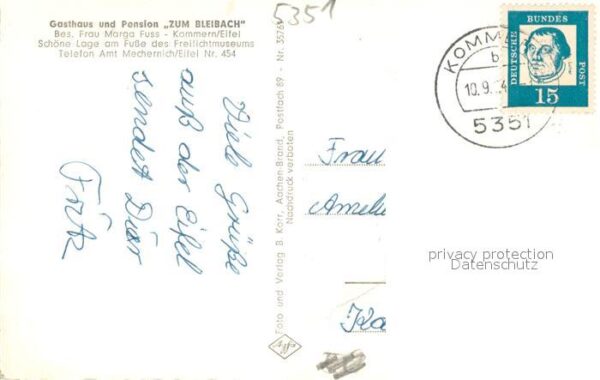 Gasthaus und Pension „ZUM BLEIBACH"
Bes. Frau Marga Fuss - Kommern/Eifel
Schöne Lage am Fuße des Freilichtmuseums
Telefon Amt Mechernich/Eifel Nr. 454
5351
Viele Grüße
auß der Eifel
sendet Dir
Fritz
Foto und Verlag B. Korr, Aachen-Brand, Postfach 89 - Nr. 35765
Nachdruck verboten
Agfa
KOMM
b
10.9.
5351
DEUTSCHE BUNDES POST
15
Frau
Ka
privacy protection
Datenschutz